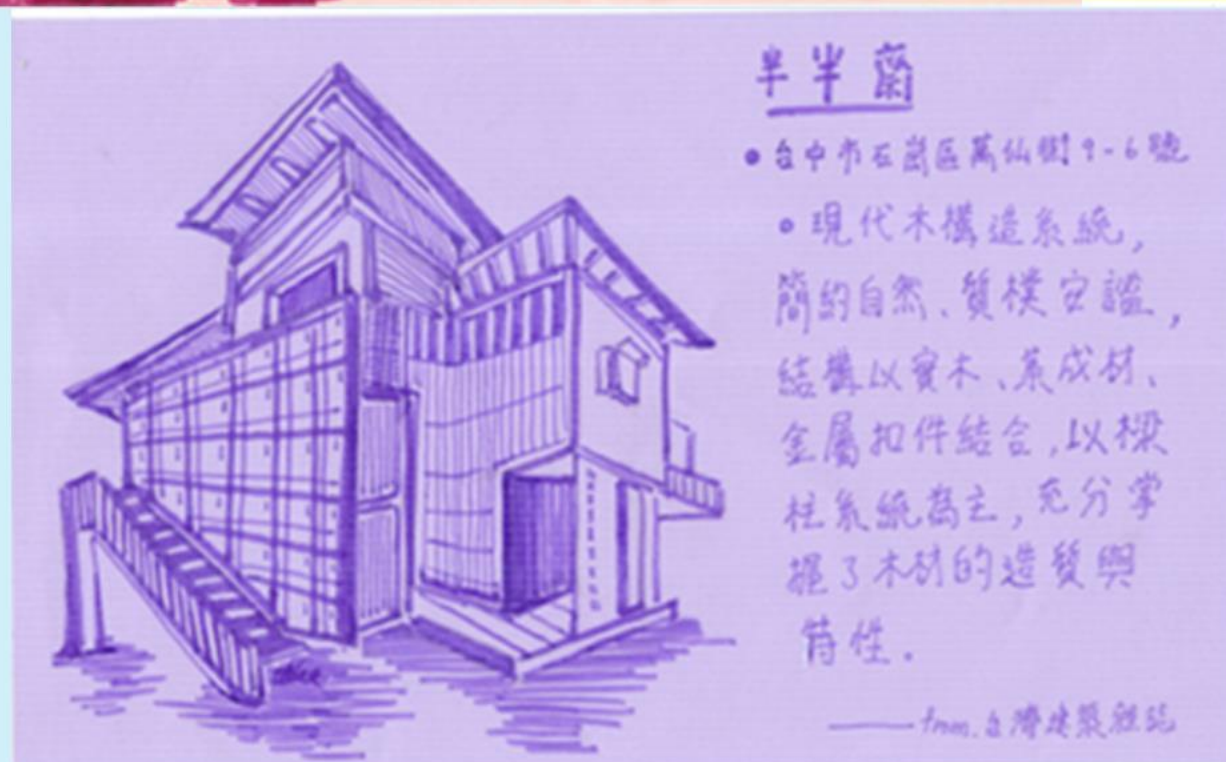 半半齋
• 台中市石岡區萬仙街9-6號
• 現代木構造系統,
簡約自然、質樸安謐,
結構以實木、集成材、
金屬扣件結合,以樑
柱系統為主,充分掌
握了木材的造質與
特性.
——from.台灣建築雜誌